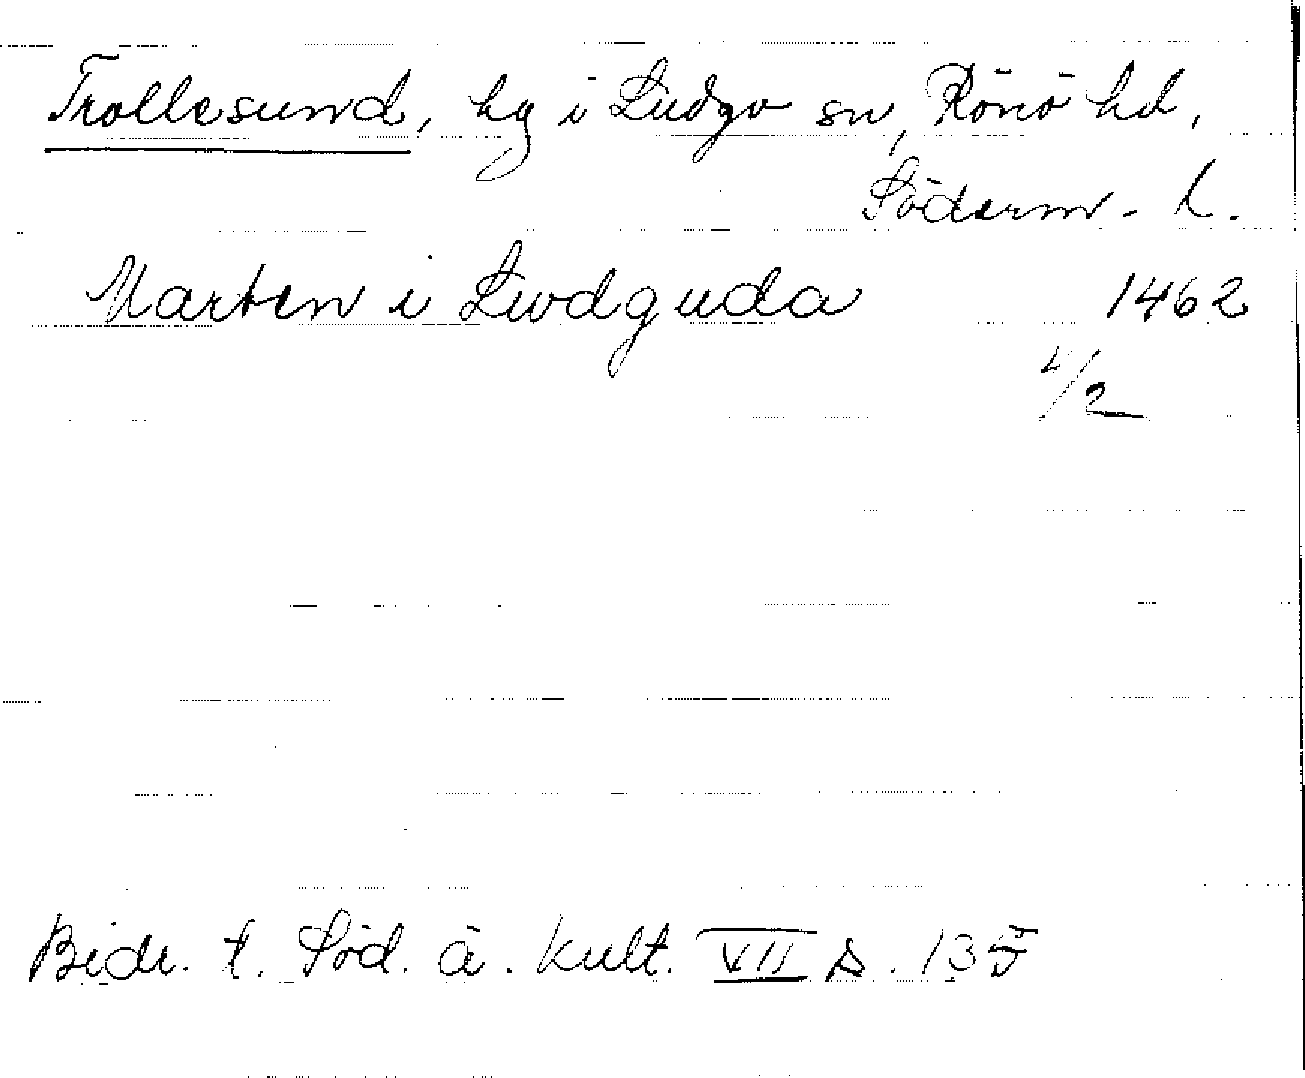 Trollesund, hg i Ludgo sn, Rönö hd,
Söderm. l.
Marten i Liwdguda 1462
4/2
Bidr. t. Söd. ä. Kult. VII s. 135